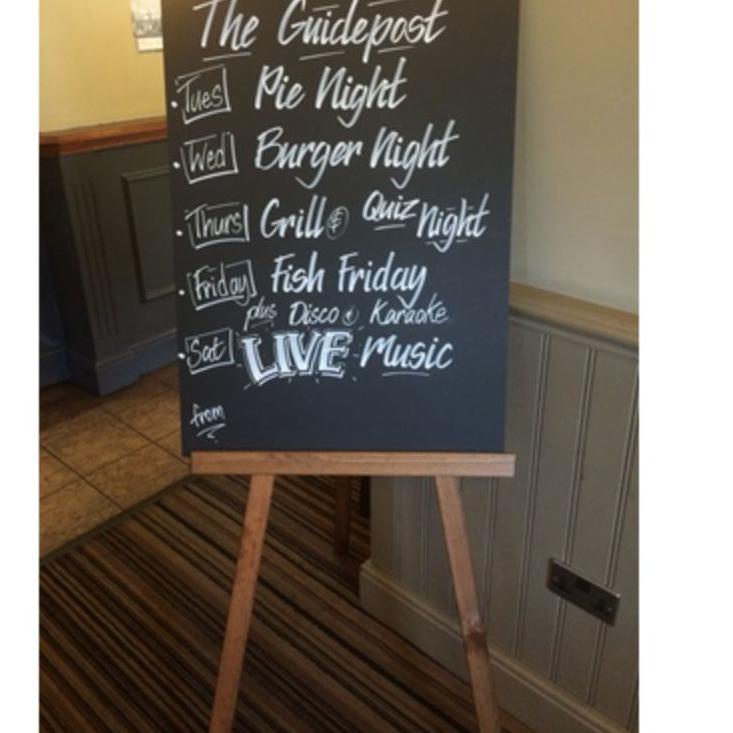 The Guidepost
• Tues Pie Night
• Wed Burger Night
• Thurs Grill & Quiz Night
• Friday Fish Friday
plus Disco & Karaoke
• Sat LIVE Music
from